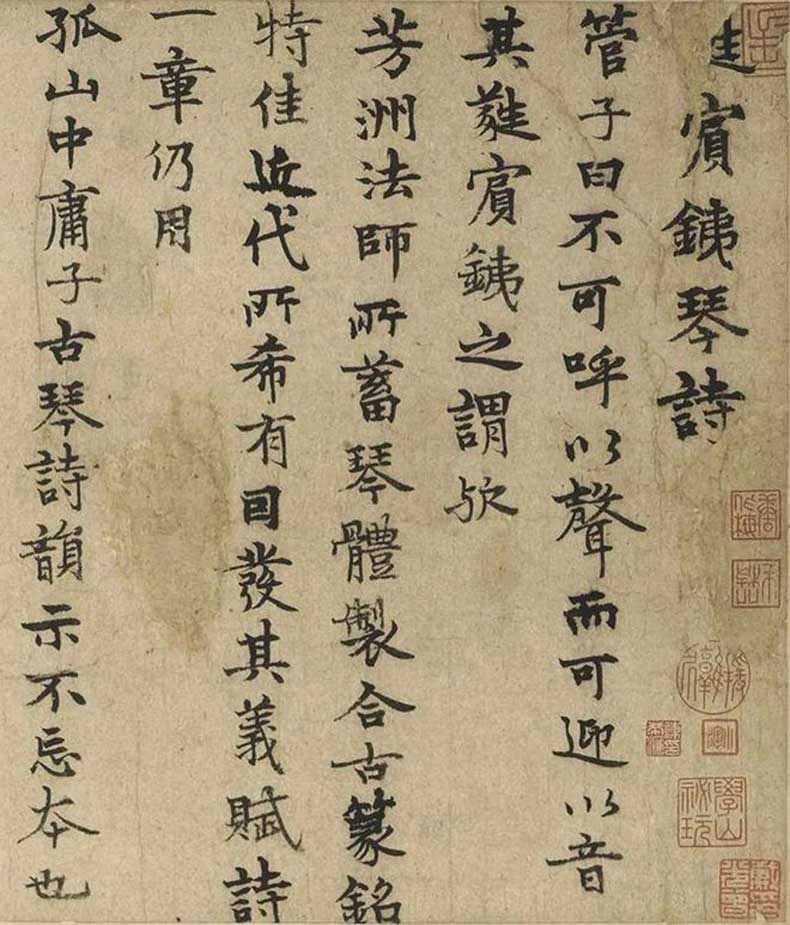 賔銕琴詩
管子曰不可呼以聲而可迎以音
其蕤賔銕之謂欤
芳洲法師所蓄琴體製合古篆銘
特佳近代所希有囙發其義賦詩
一章仍用
孤山中庸子古琴詩韻示不忘夲也